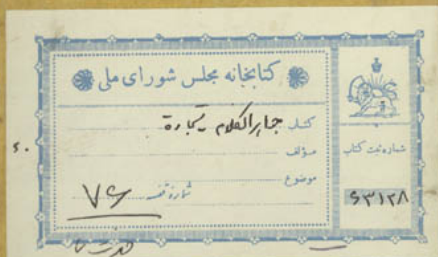 کتابخانه مجلس شورای ملی
کتاب جواهر الکلام تجارة
مؤلف
موضوع
شماره قفسه ۷۶
شماره ثبت کتاب
۶۳۱۲۸